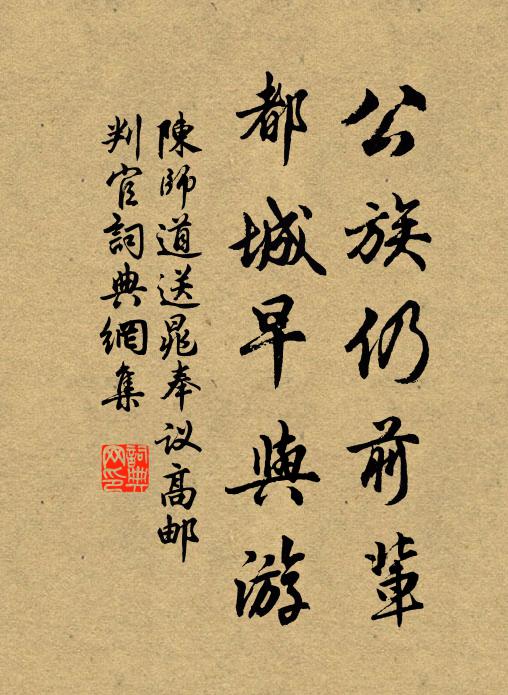 公族仍前輩
都城早與游
陳師道送晁奉议高邮
判官詞典網集
詞典網印